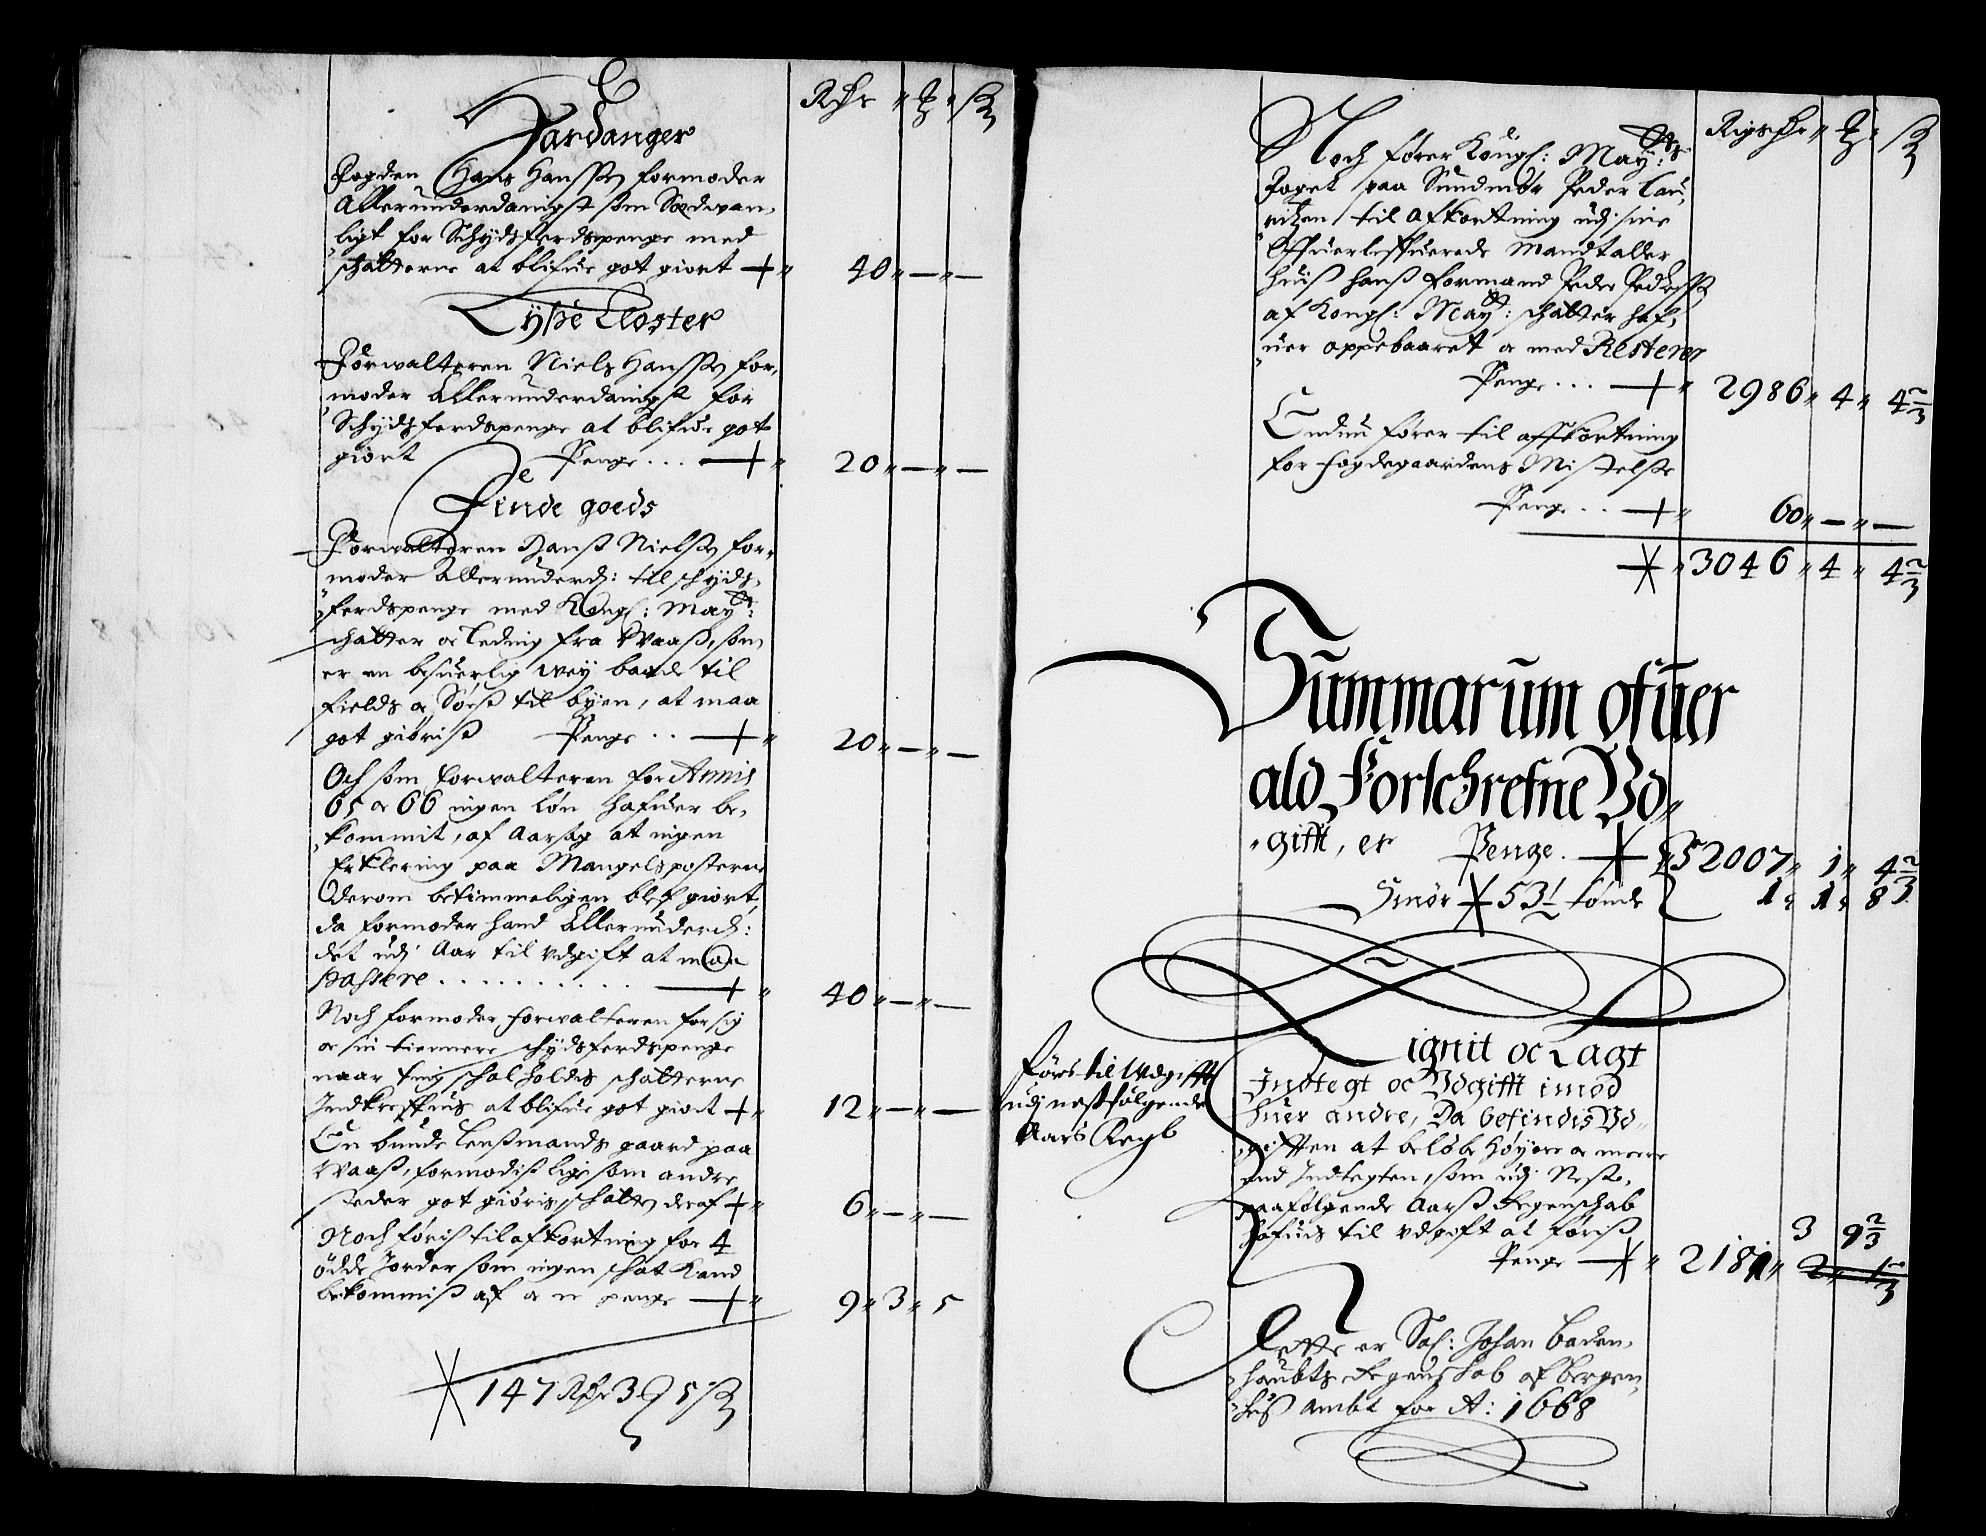 Rdr " ₰ " ß
Hardanger
Fogden Hans Hanssen formoder
Allerunderdanigst som Sædwan,
ligt for Schydsferdspenge med
schatterne at blifue got giort + " 40 " — " —
Lysse Closter
Forwalteren Niels Hanssen for,
moder Allerunderdanigst for
Schydsferdspenge at blifue got
giort Penge . . . + " 20 " — " —
Finde goeds
Forwalteren Hans Nielsen for,
moder Allerunderd: til schyds,
ferdspenge med Kongl: May:
schatter oc Leding fra Waas, som
er en besuerlig wey baade til
fields oc Søes til byen, at maa
got giöris Penge . . + " 20 " — " —
Och som forwalteren for Annis
65 oc 66 ingen løn hafuer be,
kommit, af Aarsag at ingen
Erklering paa Mangelsposterne
Derom betimmeligen blef giort,
da formoder hand Allerunderd:
det udj Aar til udgift at maa
Passere . . . . . . . . . . + " 40 " — " —
Noch formoder forwalteren for sig
oc sin tiennere schydsferdspenge
naar ting schal holdes schatterne
Indkreffuis at blifue got giort + " 12 " — " —
En bunde Lensmands gaard paa
Waas, formodis lige som andre
steder got giöris schatten deraf + " 6 " — " —
Noch føris til afkortning for 4
ödde Jorder som ingen schat kand
bekommis af oc er penge + " 9 " 3 " 5
147 Rdr 3 ₰ 5 ß
Rigsdr " ₰ " ß
Noch fører Kongl: May:
Foget paa Sundmör Peder Lau,
ritzen til afkortning udj sine
Offuerleffuerede Mandtaller
huis hans formand Peder Pederssen
af Kongl: May: schatter haf,
uer oppebaaret oc med Resterer
Penge . . . + " 2986 " 4 " 4 2/3
Endnu fører til affkortning
for fogdegaardens Mistelse
Penge . . + " 60 " — " —
" 3046 " 4 " 4 2/3
Summarum ofuer
ald Forschrefne Vd,
gifft, er Penge. 52007 " 1 " 4 2/3
Smör 53 1/2 tønde 1 " 1 " 8
Lignit oc Lagt
Indtegt oc Vdgifft imod
huer andre, Da befindis Vd,
gifften at beløbe Høyere oc meere
end Indtegten, som udj Neste,
paafølgende Aars Regenschab
hafuis til udgift at føris
3 9 2/3
Penge " 2181 "
Førs til Udgifft
udj nestfølgende
Aars Regb
Dette er Sal: Johan Baden,
haubts Regenschab af Bergen,
huus Ambt for A: 1668